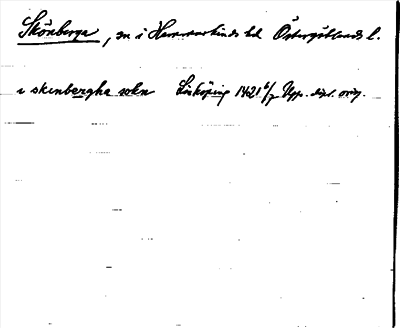 Skönberga, sn i Hammarkinds hd Östergötlands l.
i skenbergha sokn Linköping 1421 6/7 Upps. dipl. orig.